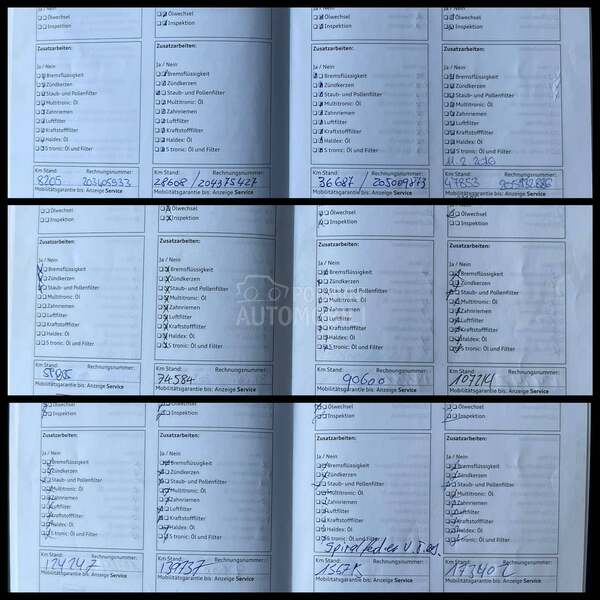 Ölwechsel
Inspektion
Zusatzarbeiten:
Ja / Nein
Bremsflüssigkeit
Zündkerzen
Staub- und Pollenfilter
Multitronic: Öl
Zahnriemen
Luftfilter
Kraftstofffilter
Haldex: Öl
S tronic: Öl und Filter
Km Stand: Rechnungsnummer:
8205 203405933
Mobilitätsgarantie bis: Anzeige Service
Ölwechsel
Inspektion
Zusatzarbeiten:
Ja / Nein
Bremsflüssigkeit
Zündkerzen
Staub- und Pollenfilter
Multitronic: Öl
Zahnriemen
Luftfilter
Kraftstofffilter
Haldex: Öl
S tronic: Öl und Filter
Km Stand: Rechnungsnummer:
28608 / 204375427
Mobilitätsgarantie bis: Anzeige Service
Ölwechsel
Inspektion
Zusatzarbeiten:
Ja / Nein
Bremsflüssigkeit
Zündkerzen
Staub- und Pollenfilter
Multitronic: Öl
Zahnriemen
Luftfilter
Kraftstofffilter
Haldex: Öl
S tronic: Öl und Filter
Km Stand: Rechnungsnummer:
36687 /
Mobilitätsgarantie bis: Anzeige Service
Ölwechsel
Inspektion
Zusatzarbeiten:
Ja / Nein
Bremsflüssigkeit
Zündkerzen
Staub- und Pollenfilter
Multitronic: Öl
Zahnriemen
Luftfilter
Kraftstofffilter
Haldex: Öl
S tronic: Öl und Filter
11.2.2016
Km Stand: Rechnungsnummer:
47853
Mobilitätsgarantie bis: Anzeige Service
Ölwechsel
Inspektion
Zusatzarbeiten:
Ja / Nein
Bremsflüssigkeit
Zündkerzen
Staub- und Pollenfilter
Multitronic: Öl
Zahnriemen
Luftfilter
Kraftstofffilter
Haldex: Öl
S tronic: Öl und Filter
Km Stand: Rechnungsnummer:
Mobilitätsgarantie bis: Anzeige Service
Ölwechsel
Inspektion
Zusatzarbeiten:
Ja / Nein
Bremsflüssigkeit
Zündkerzen
Staub- und Pollenfilter
Multitronic: Öl
Zahnriemen
Luftfilter
Kraftstofffilter
Haldex: Öl
S tronic: Öl und Filter
Km Stand: Rechnungsnummer:
74584
Mobilitätsgarantie bis: Anzeige Service
Ölwechsel
Inspektion
Zusatzarbeiten:
Ja / Nein
Bremsflüssigkeit
Zündkerzen
Staub- und Pollenfilter
Multitronic: Öl
Zahnriemen
Luftfilter
Kraftstofffilter
Haldex: Öl
S tronic: Öl und Filter
Km Stand: Rechnungsnummer:
90600
Mobilitätsgarantie bis: Anzeige Service
Ölwechsel
Inspektion
Zusatzarbeiten:
Ja / Nein
Bremsflüssigkeit
Zündkerzen
Staub- und Pollenfilter
Multitronic: Öl
Zahnriemen
Luftfilter
Kraftstofffilter
Haldex: Öl
S tronic: Öl und Filter
Km Stand: Rechnungsnummer:
107214
Mobilitätsgarantie bis: Anzeige Service
Ölwechsel
Inspektion
Zusatzarbeiten:
Ja / Nein
Bremsflüssigkeit
Zündkerzen
Staub- und Pollenfilter
Multitronic: Öl
Zahnriemen
Luftfilter
Kraftstofffilter
Haldex: Öl
S tronic: Öl und Filter
Km Stand: Rechnungsnummer:
124247
Mobilitätsgarantie bis: Anzeige Service
Ölwechsel
Inspektion
Zusatzarbeiten:
Ja / Nein
Bremsflüssigkeit
Zündkerzen
Staub- und Pollenfilter
Multitronic: Öl
Zahnriemen
Luftfilter
Kraftstofffilter
Haldex: Öl
S tronic: Öl und Filter
Km Stand: Rechnungsnummer:
139737
Mobilitätsgarantie bis: Anzeige Service
Ölwechsel
Inspektion
Zusatzarbeiten:
Ja / Nein
Bremsflüssigkeit
Zündkerzen
Staub- und Pollenfilter
Multitronic: Öl
Zahnriemen
Luftfilter
Kraftstofffilter
Haldex: Öl
S tronic: Öl und Filter
Km Stand: Rechnungsnummer:
Mobilitätsgarantie bis: Anzeige Service
Ölwechsel
Inspektion
Zusatzarbeiten:
Ja / Nein
Bremsflüssigkeit
Zündkerzen
Staub- und Pollenfilter
Multitronic: Öl
Zahnriemen
Luftfilter
Kraftstofffilter
Haldex: Öl
S tronic: Öl und Filter
Km Stand: Rechnungsnummer:
Mobilitätsgarantie bis: Anzeige Service